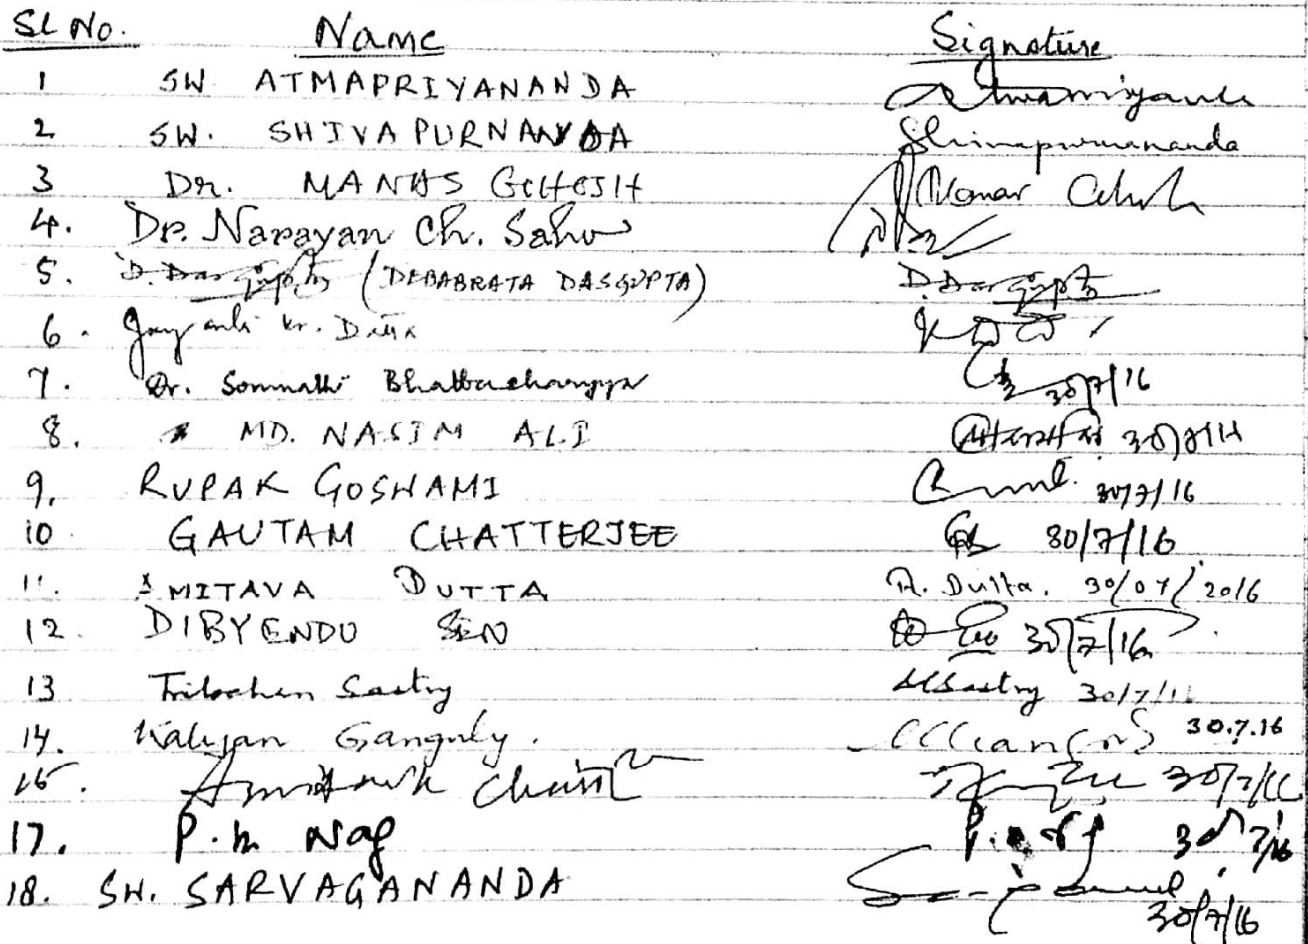 SL No. Name Signature
1 SW. ATMAPRIYANANDA
2 SW. SHIVAPURNANDA Shivapurnananda
3 Dr. MANAS GHOSH
4. Dr. Narayan Ch. Sahu
5. D. Dasgupta (DEBABRATA DASGUPTA) D. Dasgupta
6. Jayanta Kr. Datta
7. Dr. Somnath Bhattacharyya 30/7/16
8. MD. NASIM ALI 30/7/16
9. RUPAK GOSWAMI 30/7/16
10 GAUTAM CHATTERJEE 30/7/16
11. AMITAVA DUTTA A. Dutta. 30/07/2016
12. DIBYENDU SEN 30/7/16
13 Trilochan Sastry Sastry 30/7/16
14. Kalyan Ganguly. 30.7.16
15. 30/7/16
17. P. Nag 30/7/16
18. SW. SARVAGANANDA
30/7/16